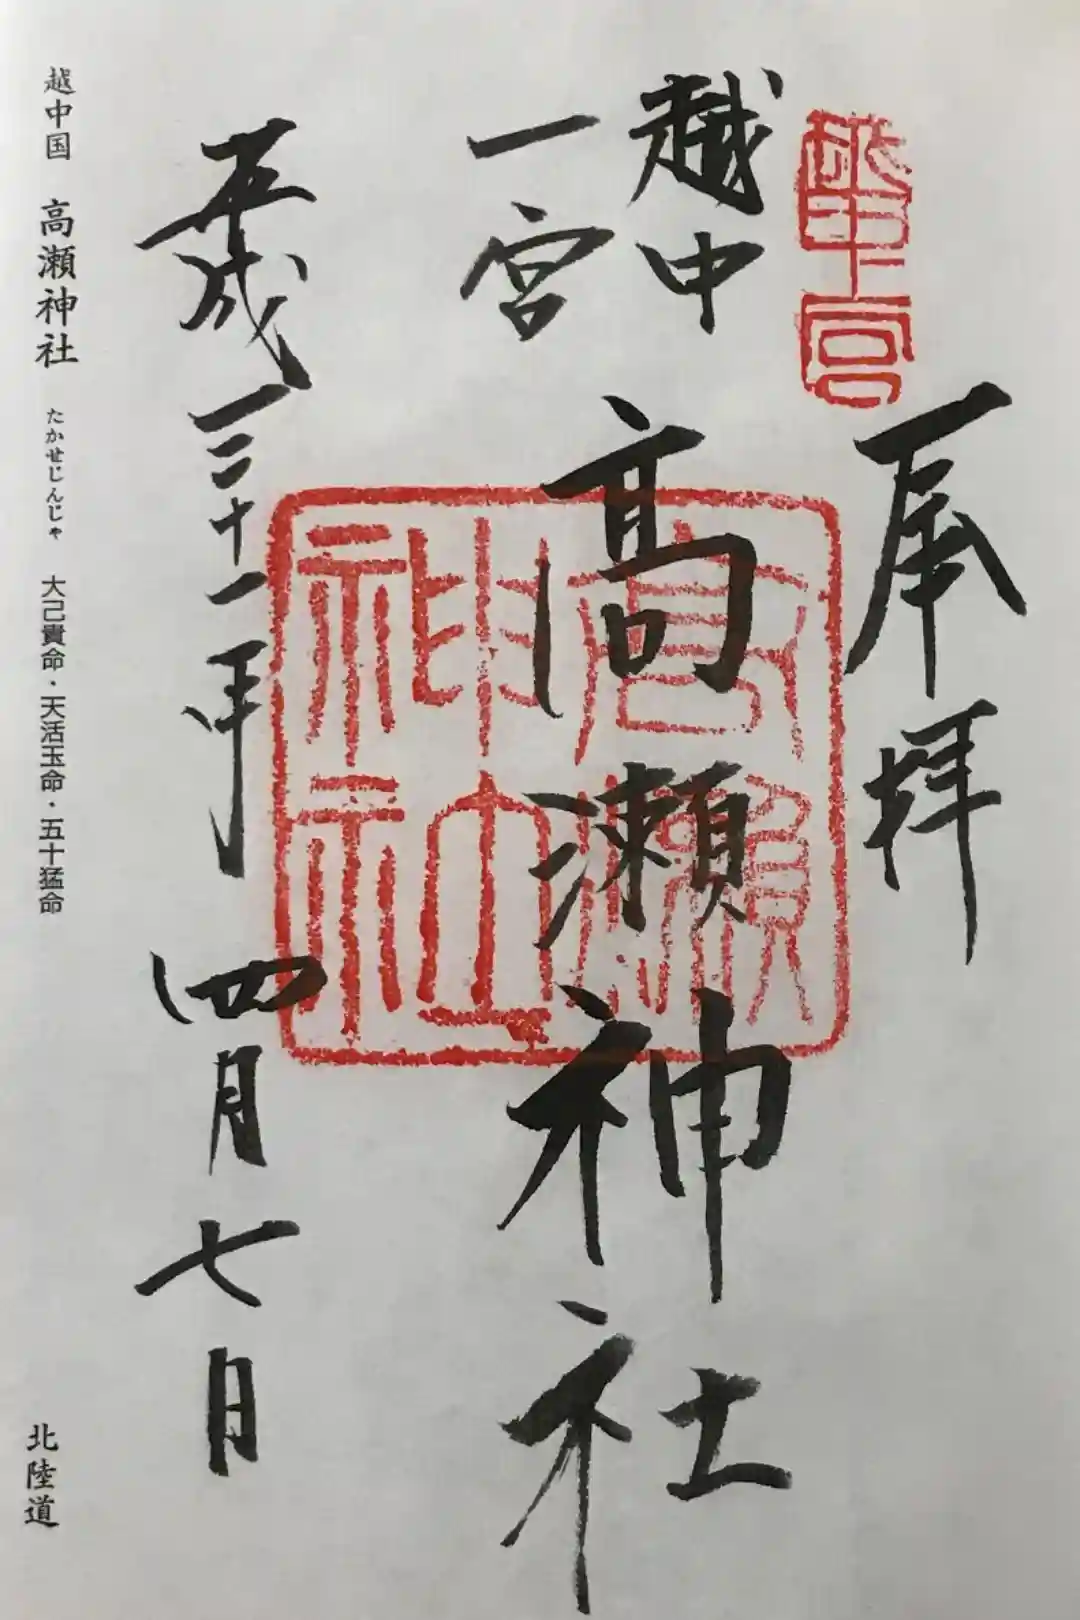 奉拝
越中
一宮
高瀬神社
平成三十一年 四月七日
高瀬
神社
越中国 高瀬神社 たかせじんじゃ 大己貴命・天活玉命・五十猛命
北陸道